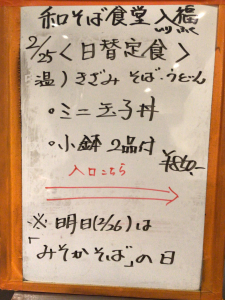 和そば食堂 入福
2/25 〈日替定食〉
温）きざみ そば・うどん
・ミニ玉子丼
・小鉢2品付
¥850-
入口こちら
※ 明日(2/26)は
「みそかそば」の日